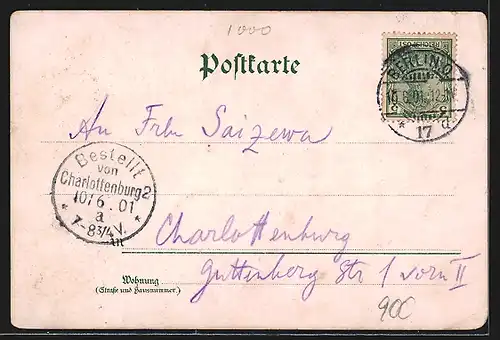 1000
Postkarte
BERLIN O.
10.6.01. 12
* 17 d
An Frln Saizewa
Bestellt
von
Charlottenburg 2
10/6.01
a
* 7-8 3/4 V. *
in
Charlottenburg
Guttenberg Str 1 vorn II
Wohnung
(Straße und Hausnummer.)
900